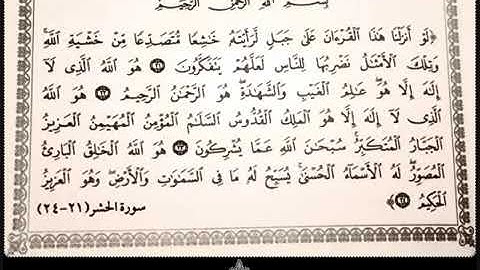 بسم الله الرحمن الرحيم
﴿لَوْ أَنزَلْنَا هَٰذَا الْقُرْءَانَ عَلَىٰ جَبَلٍ لَّرَأَيْتَهُ خَٰشِعًا مُّتَصَدِّعًا مِّنْ خَشْيَةِ اللَّهِ
وَتِلْكَ الْأَمْثَٰلُ نَضْرِبُهَا لِلنَّاسِ لَعَلَّهُمْ يَتَفَكَّرُونَ ٢١ هُوَ اللَّهُ الَّذِى لَا
إِلَٰهَ إِلَّا هُوَ عَٰلِمُ الْغَيْبِ وَالشَّهَٰدَةِ هُوَ الرَّحْمَٰنُ الرَّحِيمُ ٢٢ هُوَ اللَّهُ
الَّذِى لَا إِلَٰهَ إِلَّا هُوَ الْمَلِكُ الْقُدُّوسُ السَّلَٰمُ الْمُؤْمِنُ الْمُهَيْمِنُ الْعَزِيزُ
الْجَبَّارُ الْمُتَكَبِّرُ سُبْحَٰنَ اللَّهِ عَمَّا يُشْرِكُونَ ٢٣ هُوَ اللَّهُ الْخَٰلِقُ الْبَارِئُ
الْمُصَوِّرُ لَهُ الْأَسْمَاءُ الْحُسْنَىٰ يُسَبِّحُ لَهُ مَا فِى السَّمَٰوَٰتِ وَالْأَرْضِ وَهُوَ الْعَزِيزُ
الْحَكِيمُ ٢٤﴾ سورة الحشر (٢١-٢٤)